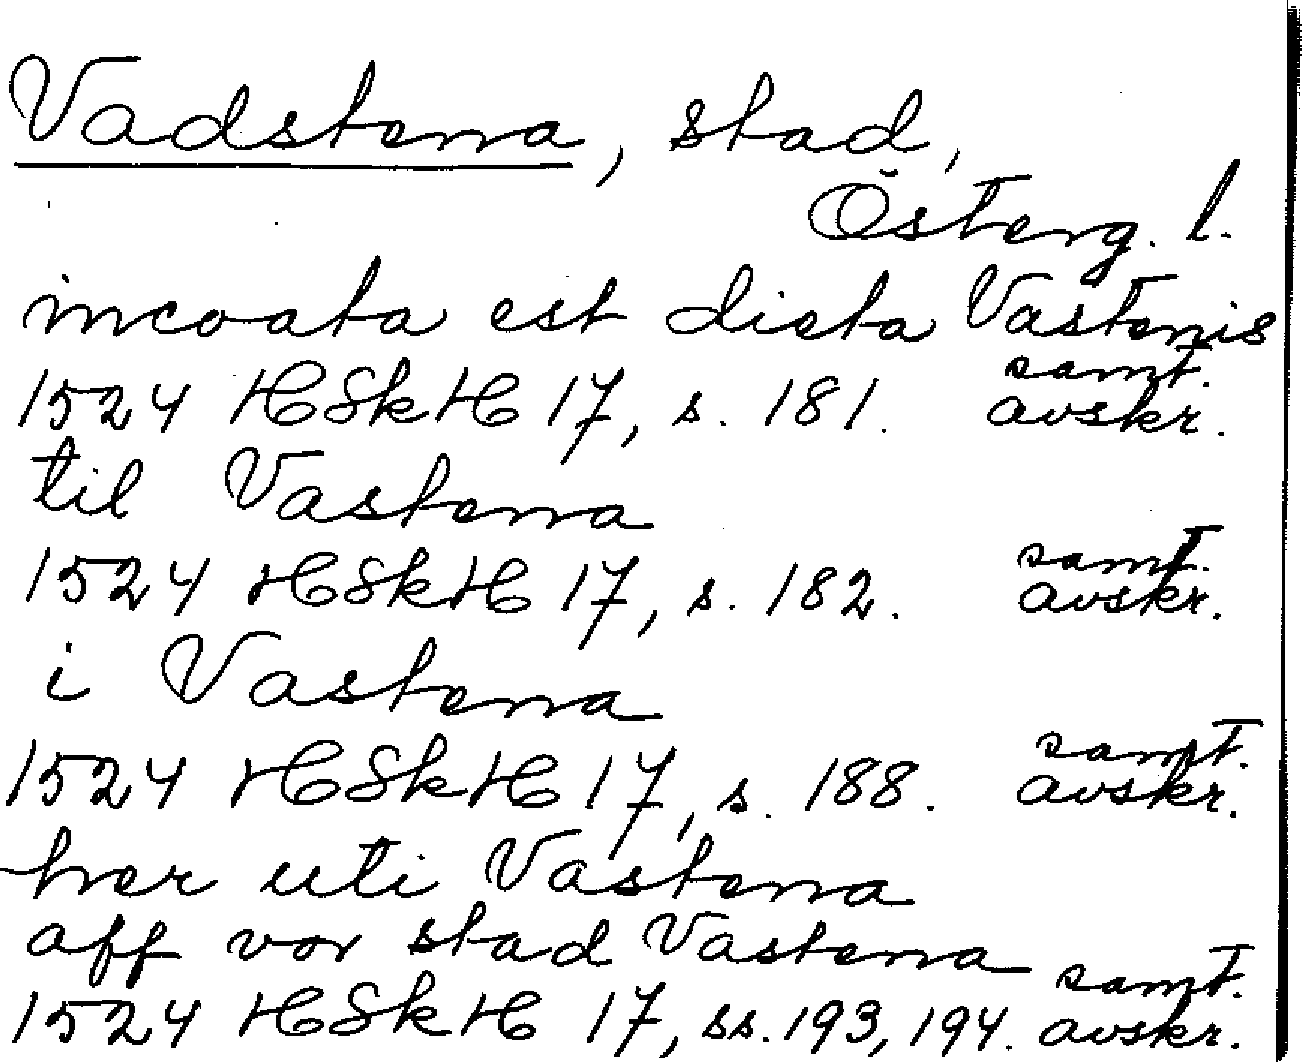 Vadstena, stad,
Österg. l.
incoata est dieta Vastenis
1524 HSkH 17, s. 181. samt. avskr.
til Vastena
1524 HSkH 17, s. 182. samt. avskr.
i Vastena
1524 HSkH 17, s. 188. samt. avskr.
her uti Vastena
aff vor stad Vastena
1524 HSkH 17, ss. 193, 194. samt. avskr.